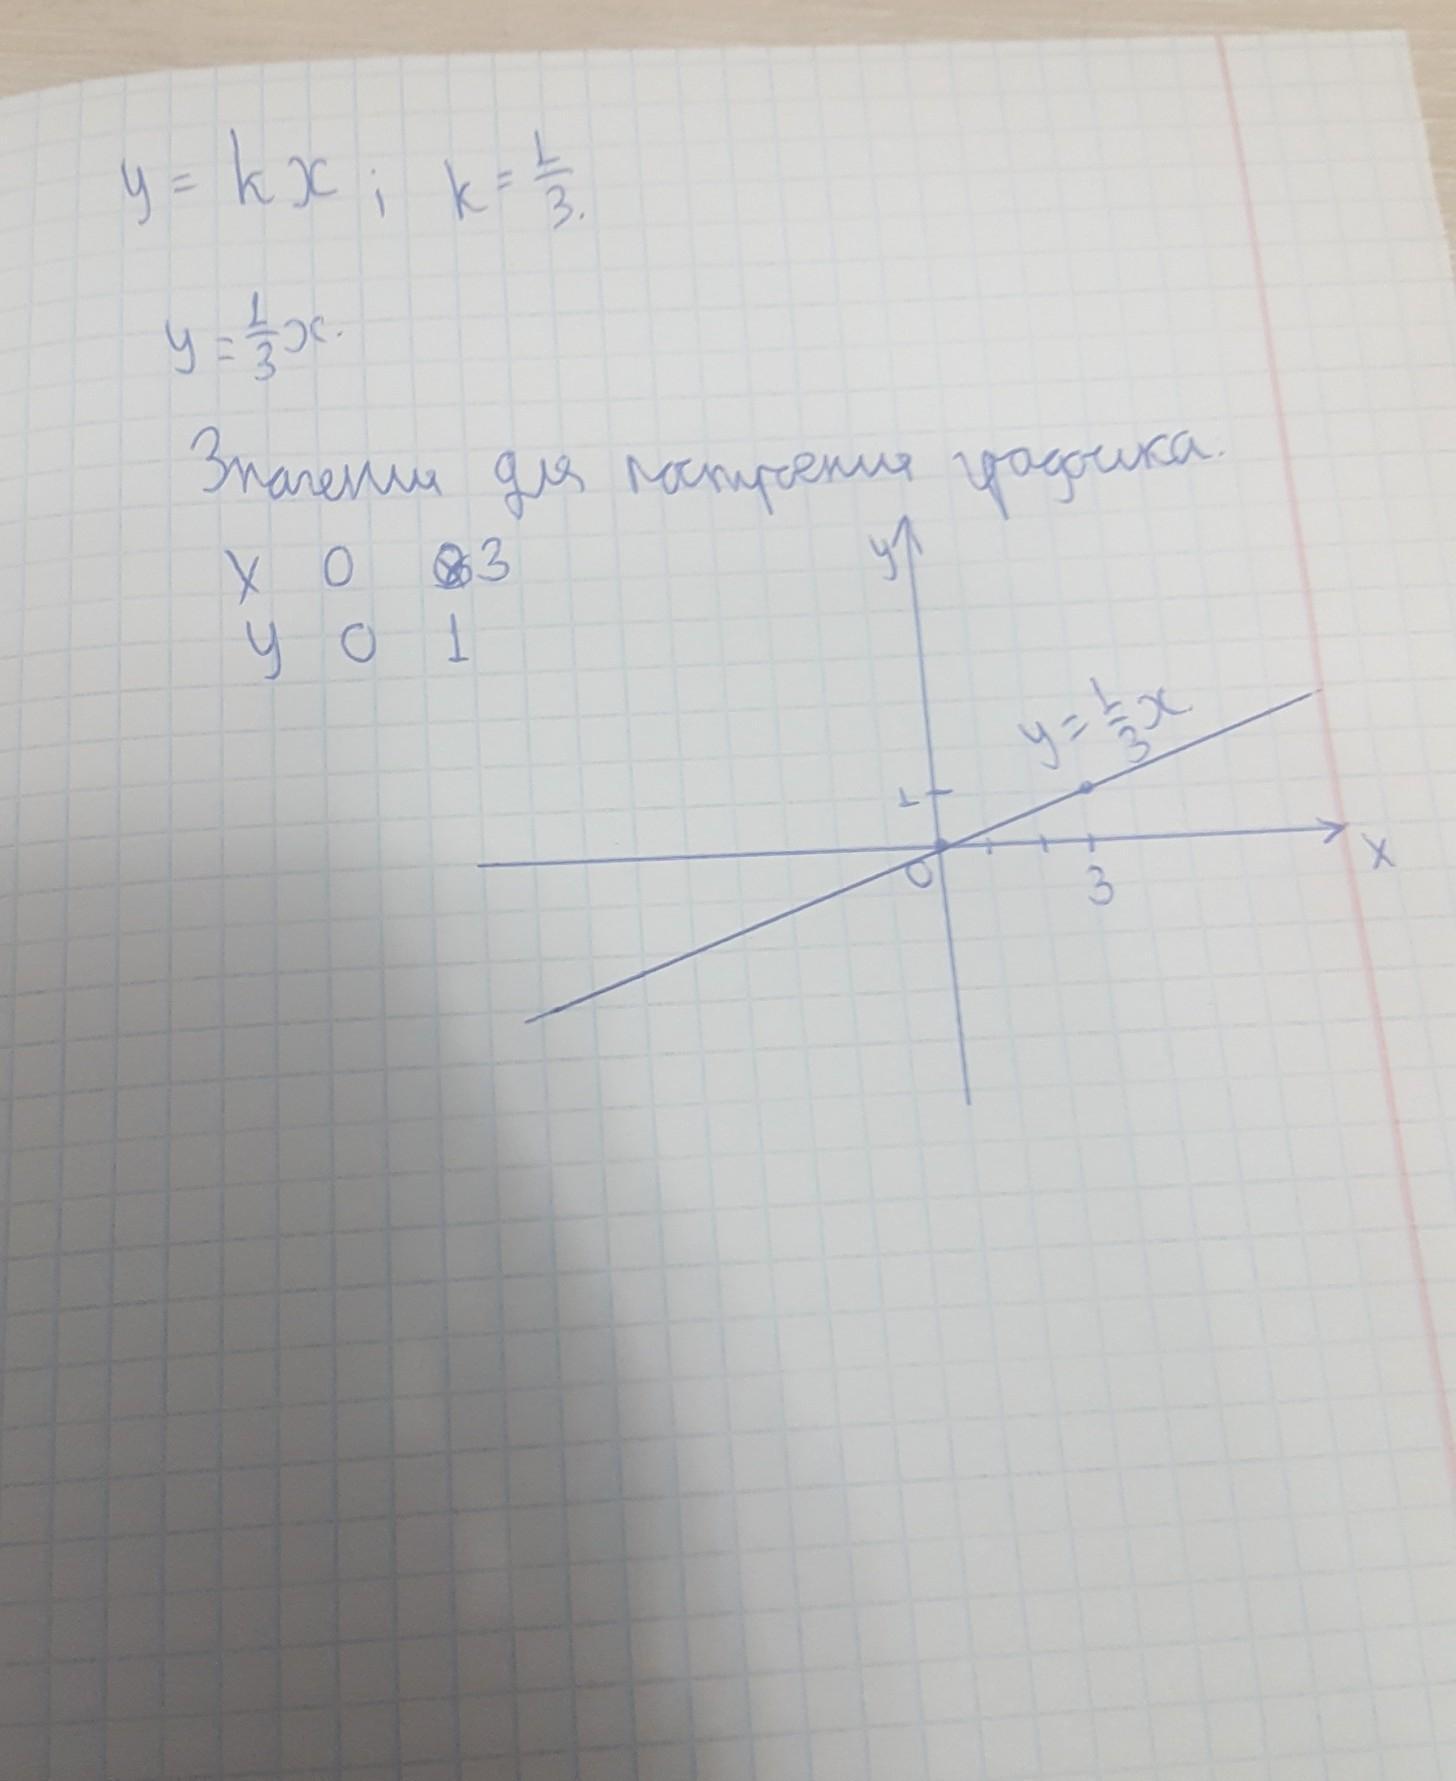 y = kx ; k = 1/3.
y = 1/3 x.
Значения для построения графика.
X 0 3
y 0 1
y
y = 1/3 x
1
0
3
X